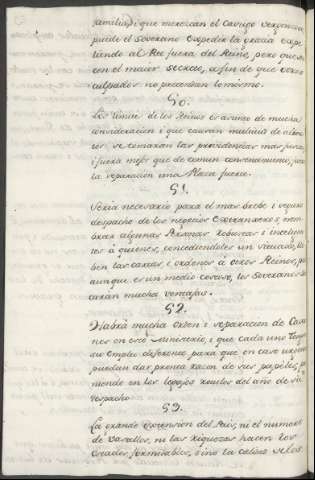 familia, i que merezcan el castigo
puede el Soberano expedir la gracia expe-
liendo al Reo fuera del Reino, pero que sea
con el maior secreto, a fin de que otros
culpados no pretendan lo mismo.
50.
Los limites de los Reinos es asunto de mucha
consideracion i que causan multitud de
se tomaran las providencias mas justas,
i fuera mejor que de comun consentimiento,
la separacion una Plaza fuerte.
51.
Seria necesario para el mas brebe i seguro
despacho de los negocios Estrangeros, nom-
brar algunas Personas robustas i
à quienes, concediendoles un
ben las cartas, i ordenes à otros Reinos,
aunque es un medio costoso, los Soberanos
caran mucha ventajas.
52.
Habrà mucha orden i separacion de
en este Ministerio, i que cada uno tenga
su empleo diferente, para que en caso urgente
puedan dar pronta razon de sus papeles,
niendo en los legajos rotulos del año de su
despacho
53.
La grande extension del Pais, ni el numero
de Vasallos, ni las riquezas hacen los
Estados formidables, sino la